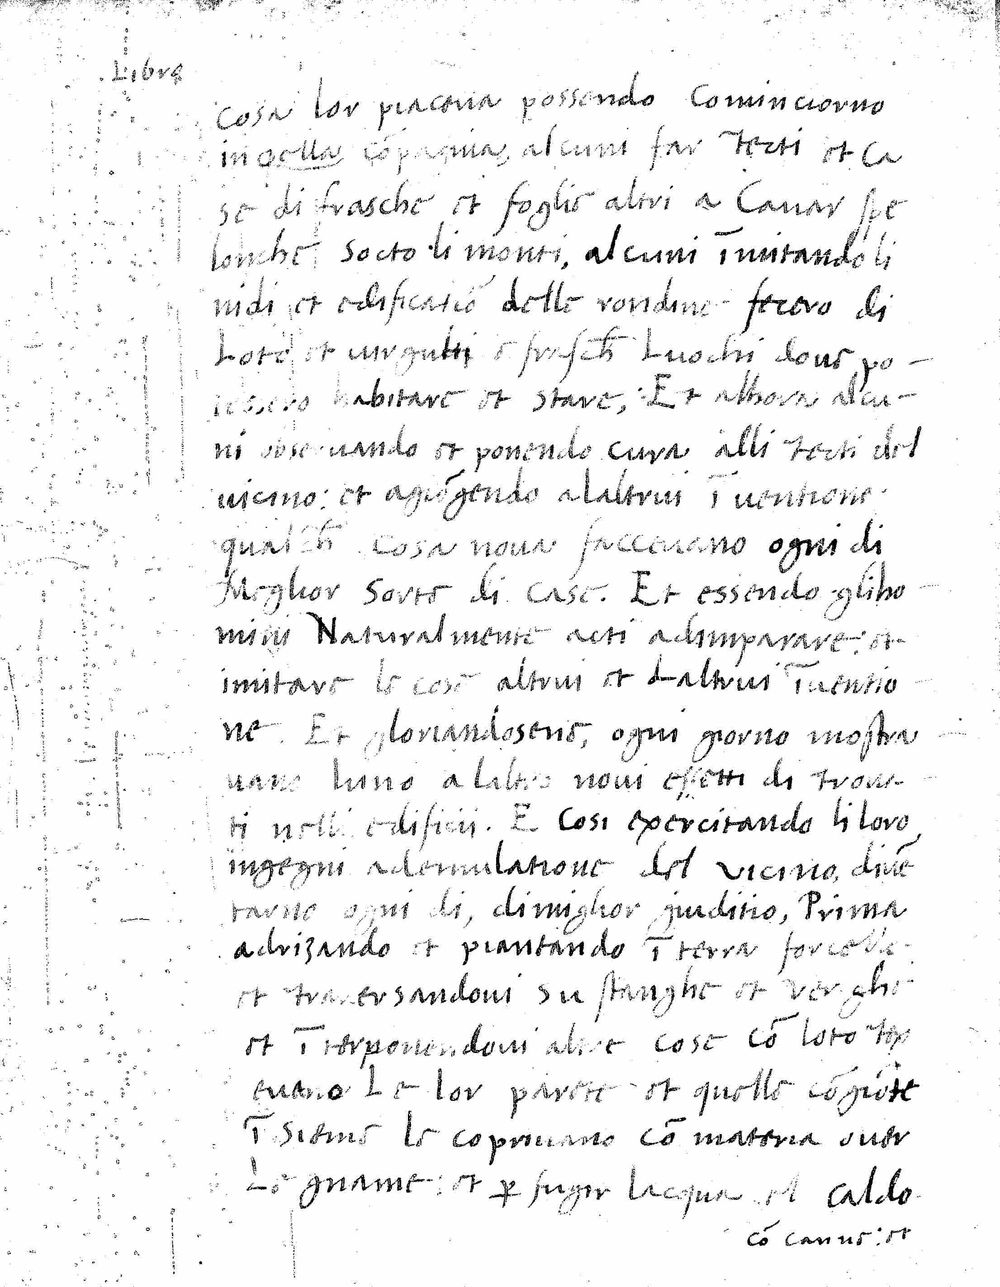 Libro
Cosa lor piaceua possendo Cominciorno
in q̃lla cõpagnia, alcuni far tecti et Ca
se di frasche et foglie altri a Cauar spe
lonche socto li monti, alcuni ĩmitando li
nidi et edificatiõ delle rondine fecero di
Loto et uirgulti e frasch̃ Luochi doue po-
tessero habitare et stare, Et alhora alcu-
ni obseruando et ponendo cura alli tecti del
uicino: et agiõgendo alaltrui ĩuentione
qualch̃ cosa noua facceuano ogni di
Meglior sorte di case. Et essendo gliho-
mini Naturalmente acti adimparare: et
imitare le cose altrui et daltrui ĩuentio-
ne. Et gloriandosene, ogni giorno mostra-
uano luno alaltro noui effetti di troua-
ti nelli edificii. E Cosi exercitando li loro
ingegni ademulatione del vicino, diuẽ
tarno ogni di, dimiglior giuditio, Prima
adrizando et piantando ĩ terra forcelle
et trauersandoui su stanghe et verghe
et ĩterponendoui altre cose cõ loto tex
euano Le lor parete et quelle cõgiõte
ĩsieme le copriuano cõ materia ouer
Legname: et ꝑ fugir lacqua el caldo
cõ canne: et